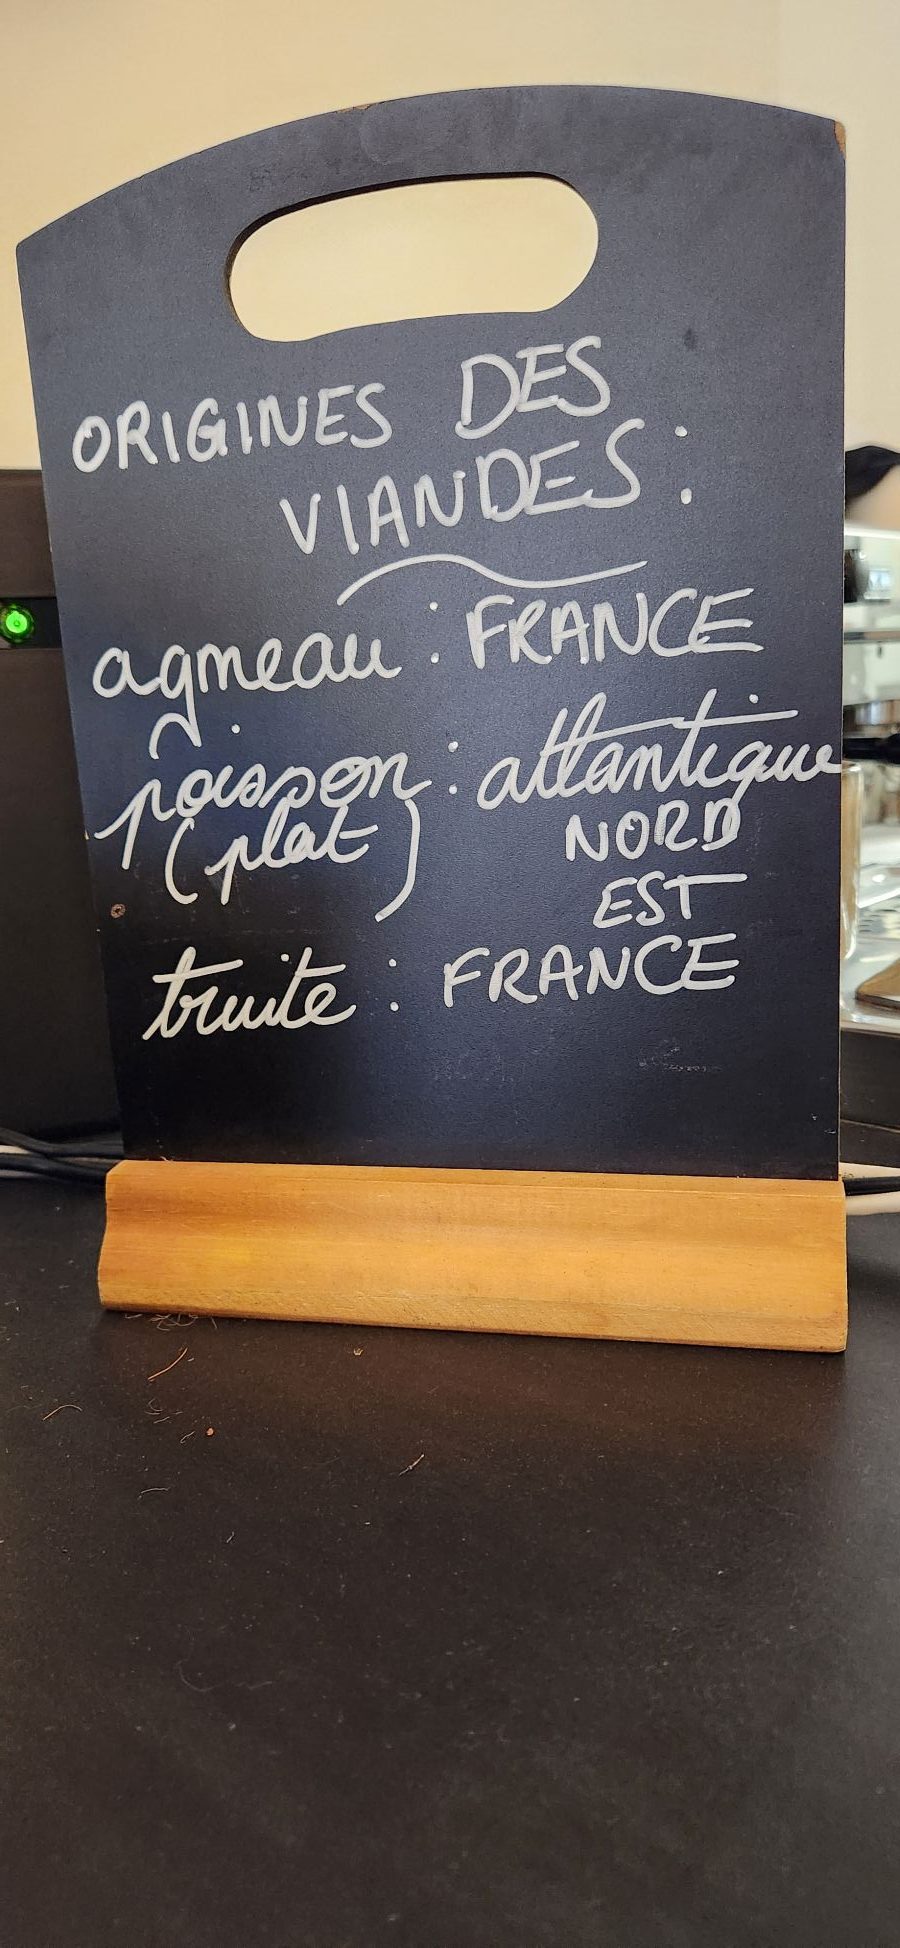 ORIGINES DES
VIANDES :
agneau : FRANCE
poisson : atlantique
(plat) NORD
EST
truite : FRANCE